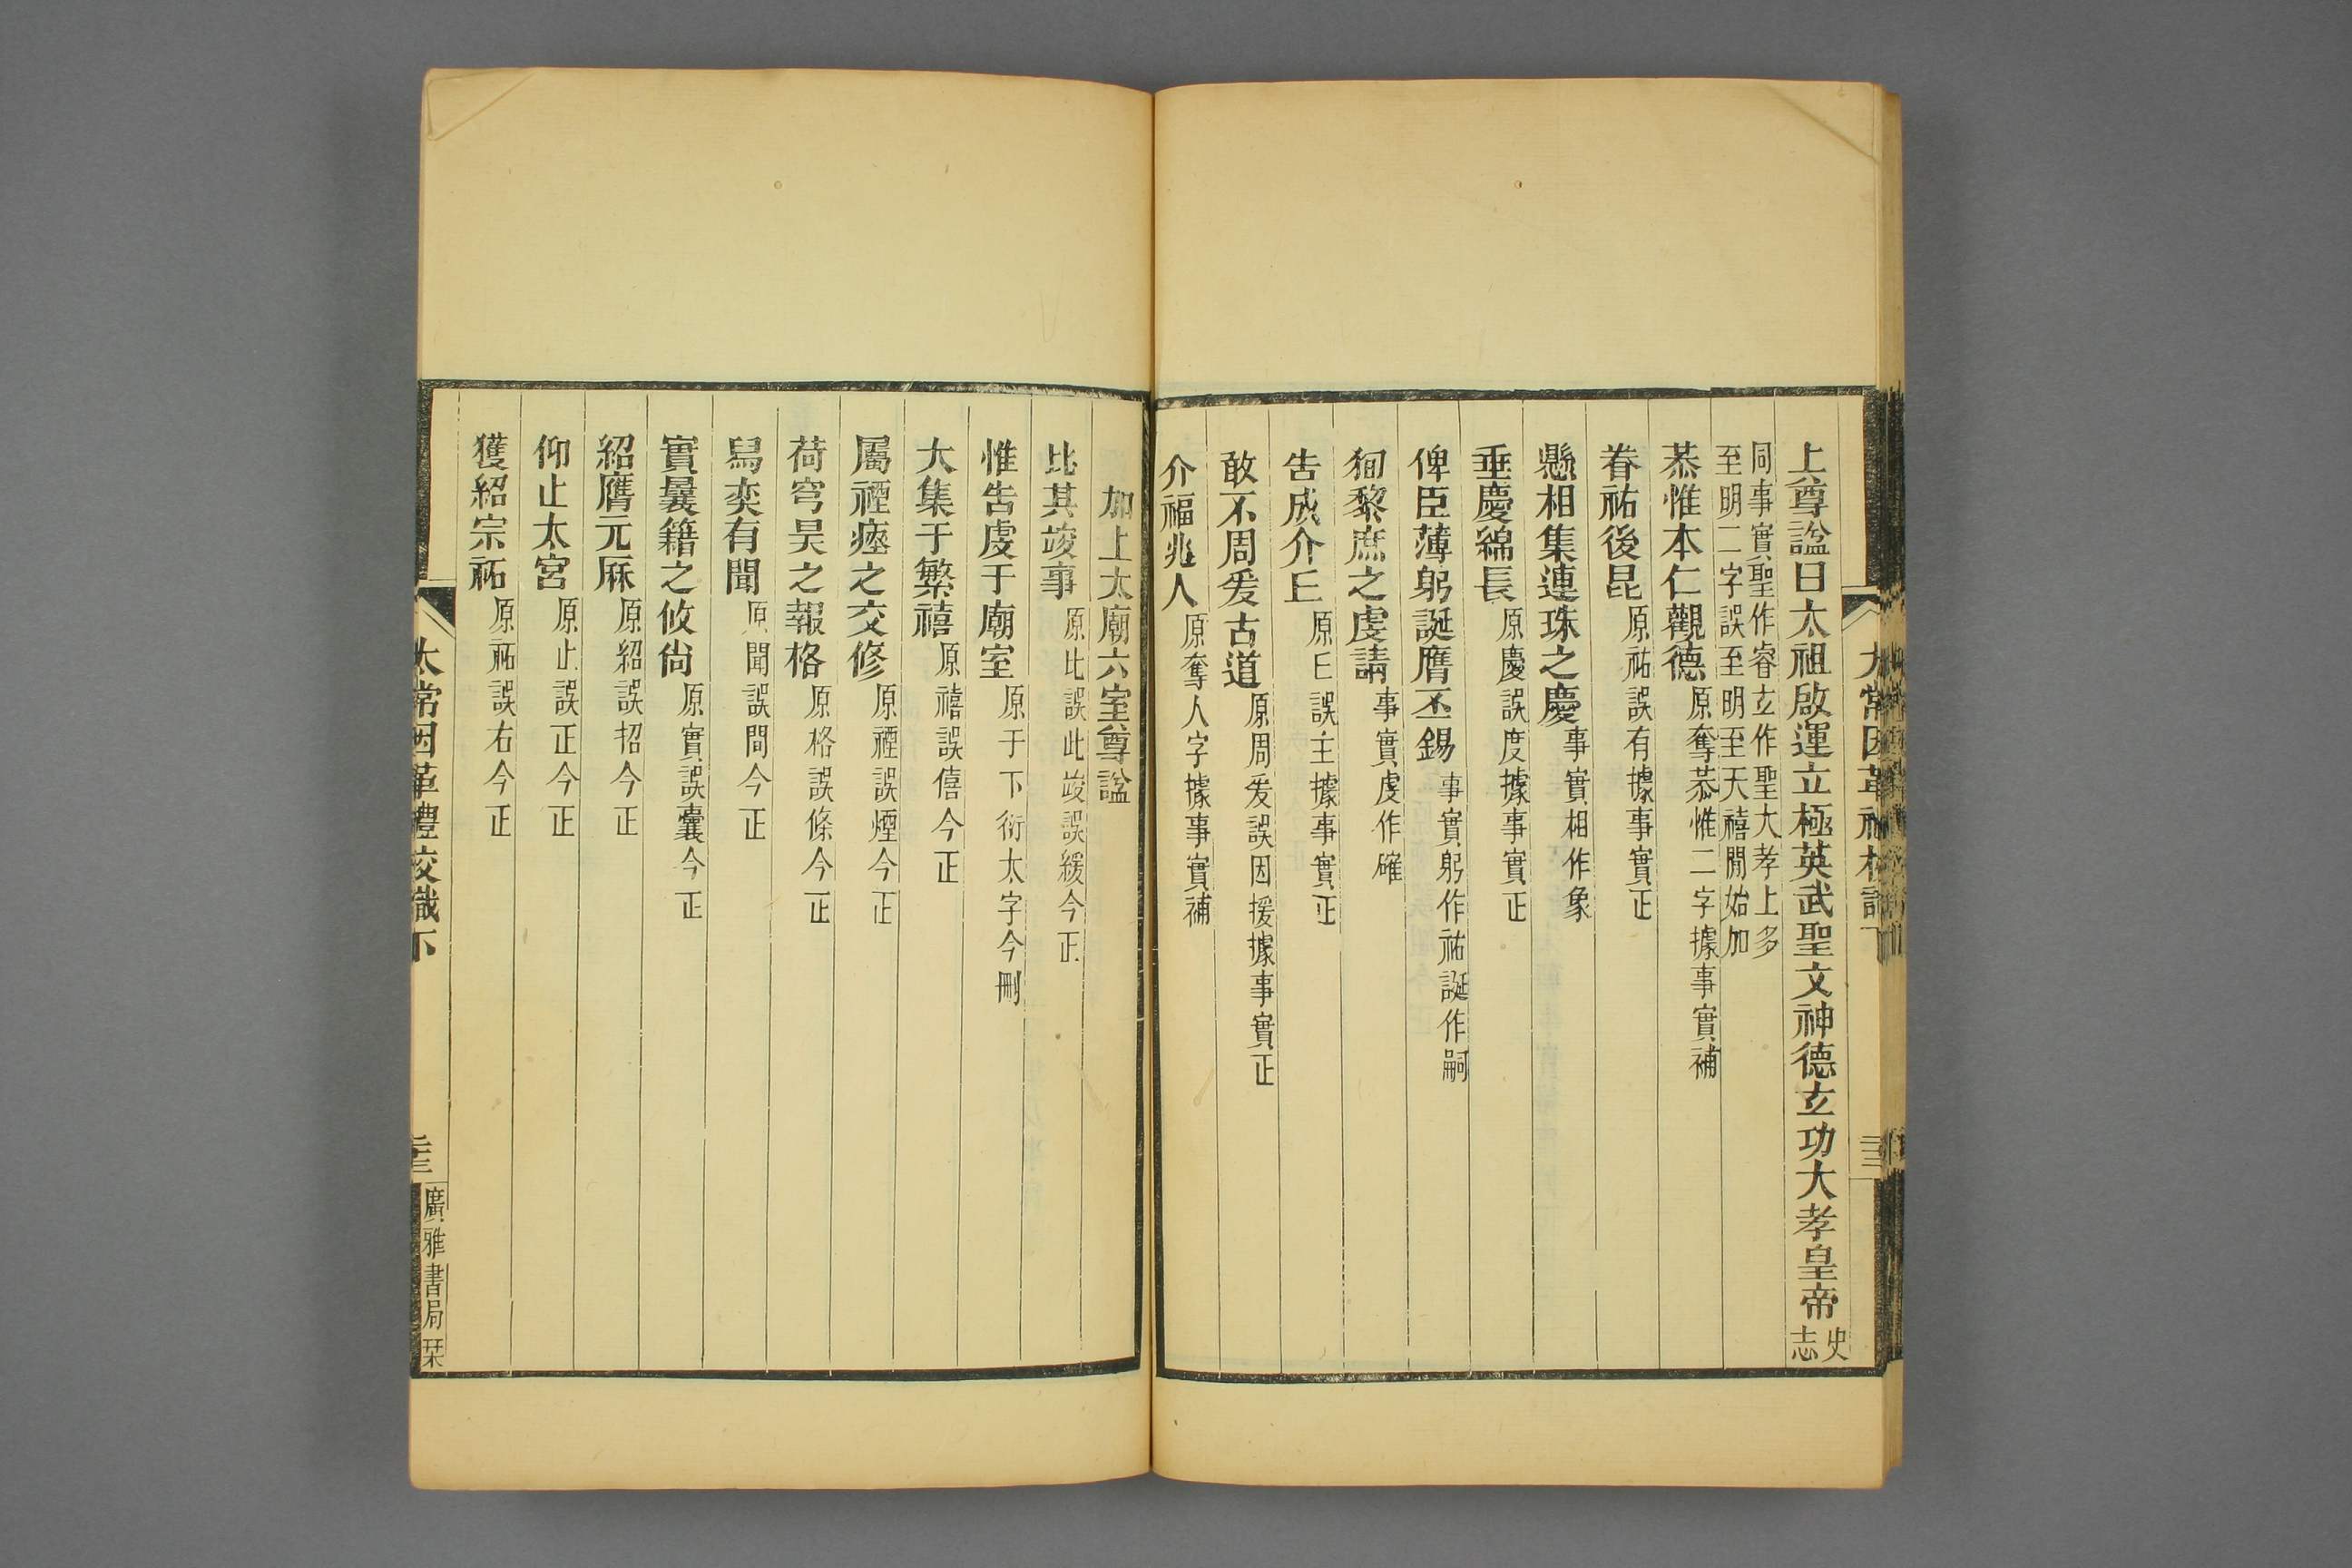 上尊諡曰太祖啟運立極英武聖文神德玄功大孝皇帝史志
同事實聖作睿玄作聖大孝上多
至明二字誤至明至天禧閒始加
恭惟本仁觀德原奪恭惟二字據事實補
眷祐後昆原祐誤有據事實正
懸相集連珠之慶事實相作象
垂慶綿長原慶誤度據事實正
俾臣薄躬誕膺丕錫事實躬作祐誕作嗣
徇黎庶之虔請事實虔作確
告成介丘原丘誤主據事實正
敢不周爰古道原周爰誤因援據事實正
介福兆人原奪人字據事實補
加上太廟六室尊諡
比其竣事原比誤此竣誤緩今正
惟告虔于廟室原于下衍太字今刪
大集于繁禧原禧誤僖今正
屬禋瘞之交修原禋誤煙今正
荷穹昊之報格原格誤條今正
舄奕有聞原聞誤間今正
實曩籍之攸尙原實誤囊今正
紹膺元庥原紹誤招今正
仰止太宮原止誤正今正
獲紹宗祏原祏誤右今正
太常因革禮校識下
二十三
廣雅書局栞